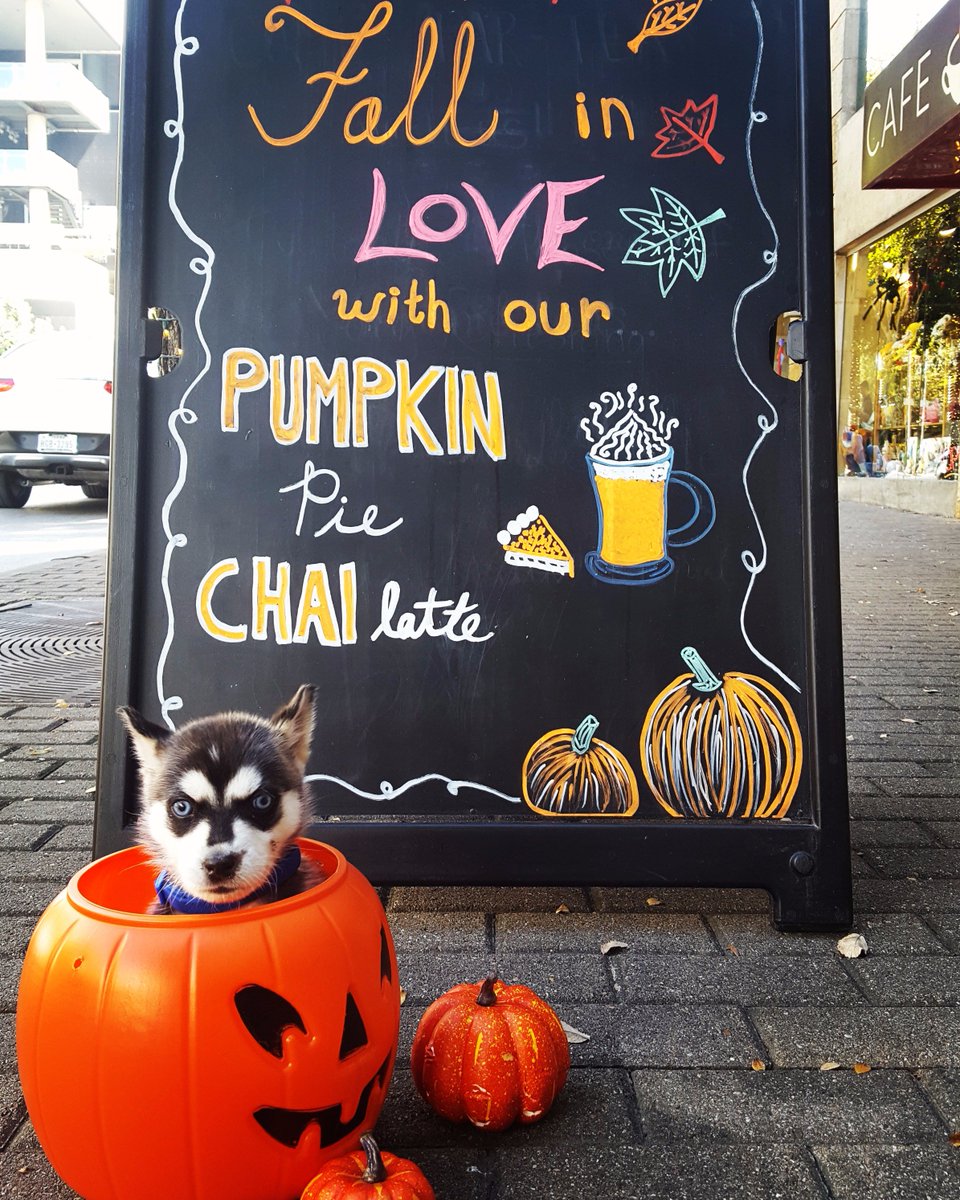 Fall in
LOVE
with our
PUMPKIN
Pie
CHAI latte
CAFE